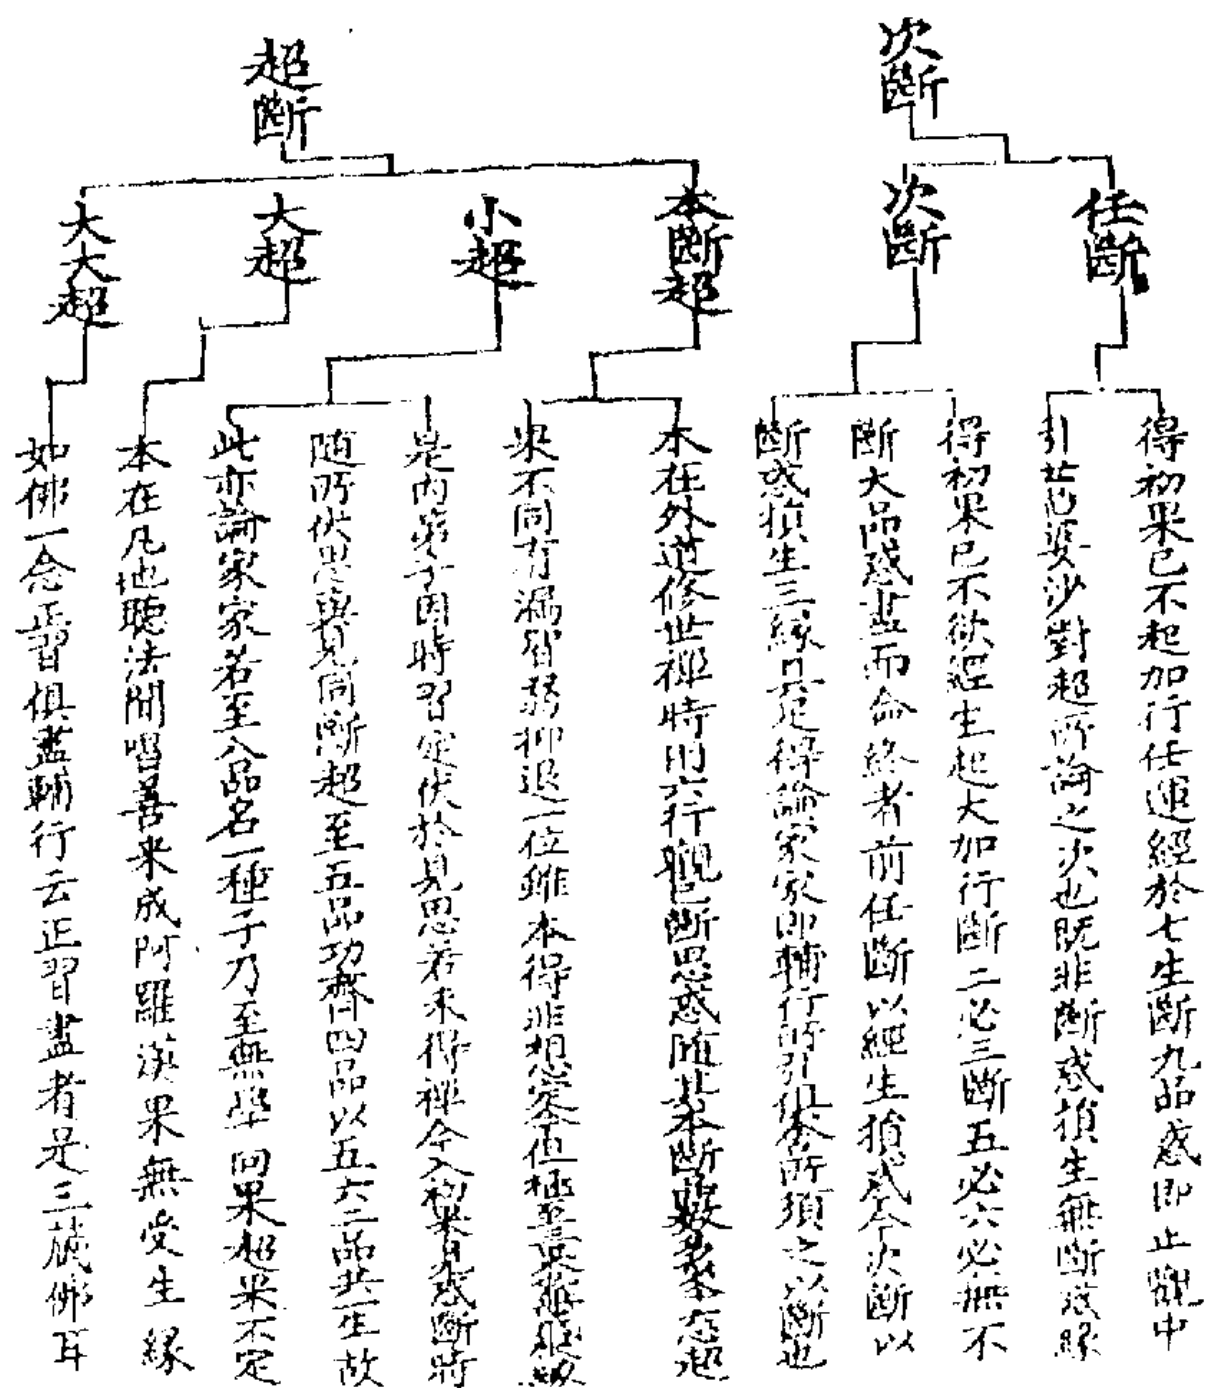 次斷
任斷
得初果已不起加行任運經於七生斷九品惑即止觀中
引昔婆沙對超所論之次也既非斷惑損生無斷惑緣
次斷
得初果已不欲經生起大加行斷二必三斷五必六必無不
斷大品惑盡而命終者前任斷以經生損惑今次斷以
斷惑損生三緣具足得論家家即輔行所引俱舍所須之以斷也
超斷
本斷超
本在外道修世禪時用六行觀已斷思惑隨其本斷數多不定超
果不同有漏智弱抑退一位雖本得非想定但極至
小超
是內弟子因時習定伏於見思若未得禪今入初果見惑斷時
隨所伏思與見同斷超至五品功齊四品以五六二品共一生故
此亦論家家若至八品名一種子乃至無學 向果超果不定
大超
本在凡地聽法聞唱善來成阿羅漢果無受生緣
大大超
如佛一念正習俱盡輔行云正習盡者是三藏佛耳